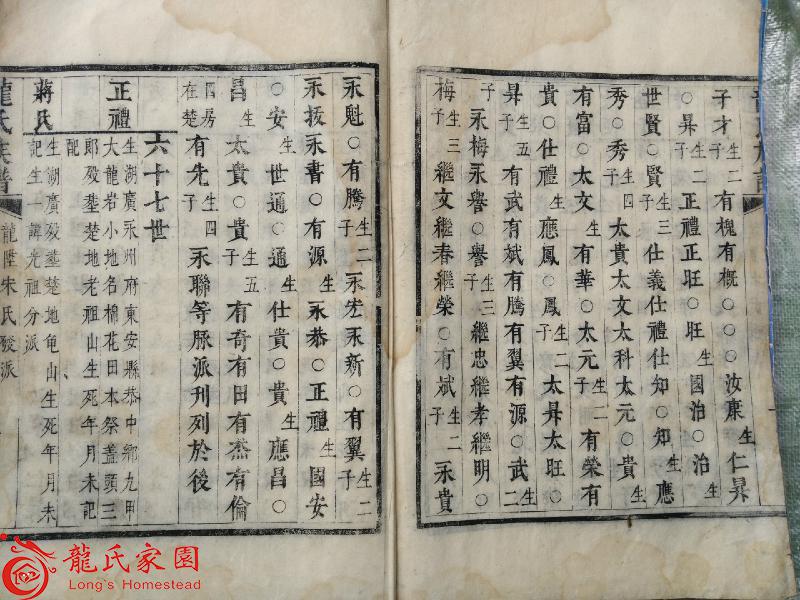 子才子生二有槐有概○○○○汝康生仁昇
○昇子生二正禮正旺○旺生國治○治生
世賢○賢子生三仕義仕禮仕知○知生應
秀○秀子生四太貴太文太科太元○貴生
有富○太文生有華○太元子生二有榮有
貴○仕禮生應鳳○鳳子生二太昇太旺○
昇子生五有武有斌有騰有翼有源○武生二
子永梅永譽○譽子生三繼忠繼孝繼明○
梅子生三繼文繼春繼榮○有斌子生二永貴
永魁○有騰子生二永宏永新○有翼子生二
永扳永書○有源生永恭○正禮生國安
○安生世通○通生仕貴○貴生應昌○
昌生太貴○貴子生五有奇有田有杰有倫
四房在楚有先子生四永聯等脉派刊列於後
六十七世
正禮
生湖廣永州府東安縣恭中鄉九甲
大龍岩小地名棉花田本祭蓋頭三
郎殁塟楚地老祖山生死年月未記
配
蔣氏
生湖廣殁塟楚地龟山生死年月未
記生一諱光祖分派
龍氏族譜
龍陞朱氏發派
龍氏家園
Long's Homestead